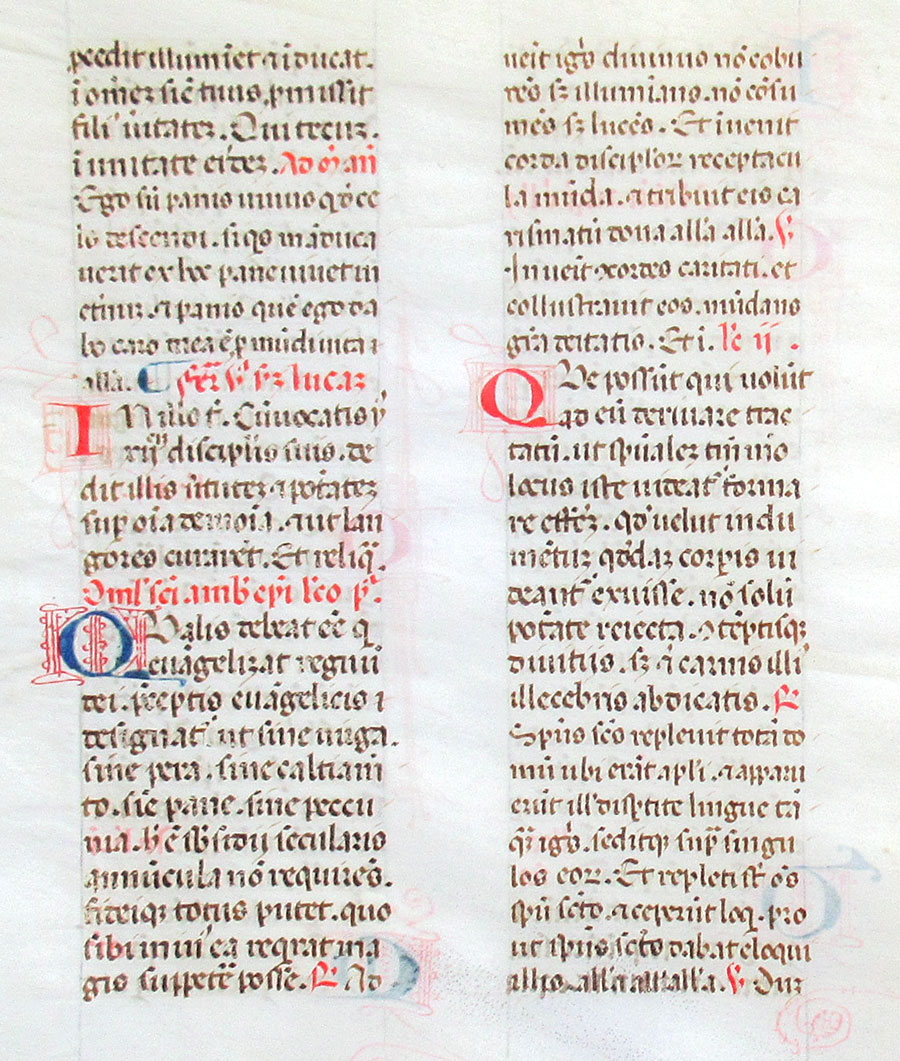 p̄cedit illumīet ⁊ īducat.
ī om̄ez sīc tuus p̱missit
filiꝰ ūitatez. Qui tecuz.
ī unitate eidez. Ad mag̃
Ego sū panis uiuus q̇ de ce
lo descendi. si q̇s māduca
uerit ex hoc pane uiuet in
etnuz. ⁊ panis quē ego da
bo caro mea ē p̱ mūdi uita ⁊
all'a. fēr v. sz lucaz
IN illo t̄. Cōuocatis ih'
xiiꝯ discipl'is suis. de
dit illis v̄tutez ⁊ p̄tātez
sup̱ oīa demōia. ⁊ ut lan
gores curarēt. Et reliq̄.
Oml' sci amb' ep̄i l'co p̄ª.
QValis debeat eē q̇
euāgelizat regnū
dei. p̄ceptis euāgelicis ⁊
designat' ut sine uirga.
sine pera. sine calciam̄
to. sīe pane. sine peccu
nia. h' ē sb'sidii secularis
amīnicula nō requirēs.
fideiqz totus putet. quo
sibi minꝰ ea reqrat ma
gis suppetē posse. R Ad
ueīt ig̊ diuinus nō cobu
rēs sz illumīans. nō cōsu
mēs sz lucēs. Et īuenit
corda disciploꝝ receptacu
la mūda. ⁊ tribuit eis ca
rismatū dona all'a all'a. V
Inueīt ꝯcordes caritati. et
collustrauit eos. mūdans
gr̄a deitatis. Et i. l'c ii.
QVe possūt qui uolūt
ad eū deriuare trac
tatū. ut sp̄ualez tm̄ mō
locus iste uideat' forma
re effēz. q̇d uelut indu
mētuz q̇ddaz corp̱is ui
deant' exuisse. nō solū
potate reiecta. ⁊ ꝯtēptisqz
diuitiis. sz ⁊ carnis illiꝰ
illecebris abdicatis. R
Sp̄us scō repleuit totā do
mū ubi erāt apl'i. ⁊ apparu
erūt ill' disp̱tite lingue tā
q̄z ig̊s. seditqz sup̱ singu
los eoꝝ. Et repleti st̄ oēs
sp̄u scō. ⁊ ceperūt loq̇. pro
ut sp̄us scō dabat eloqui
illis. all'a all'a all'a. V Dur